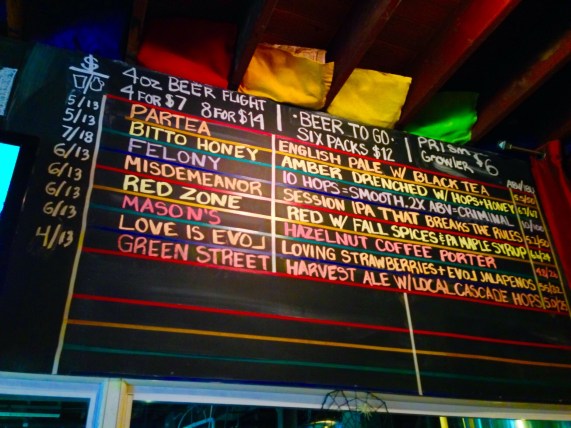 $
4oz BEER FLIGHT
4 FOR $7 8 FOR $14
BEER TO GO
SIX PACKS $12
GROWLERS $6
5/13 PARTEA ENGLISH PALE W/ BLACK TEA
5/13 BITTO HONEY AMBER DRENCHED W/ HOPS+HONEY
7/18 FELONY 10 HOPS=SMOOTH. 2X ABV=CRIMINAL
6/13 MISDEMEANOR SESSION IPA THAT BREAKS THE RULES
6/13 RED ZONE RED W/ FALL SPICES & PA MAPLE SYRUP
6/13 MASON'S HAZELNUT COFFEE PORTER
6/13 LOVE IS EVOL LOVING STRAWBERRIES+EVOL JALAPENOS
4/13 GREEN STREET HARVEST ALE W/LOCAL CASCADE HOPS